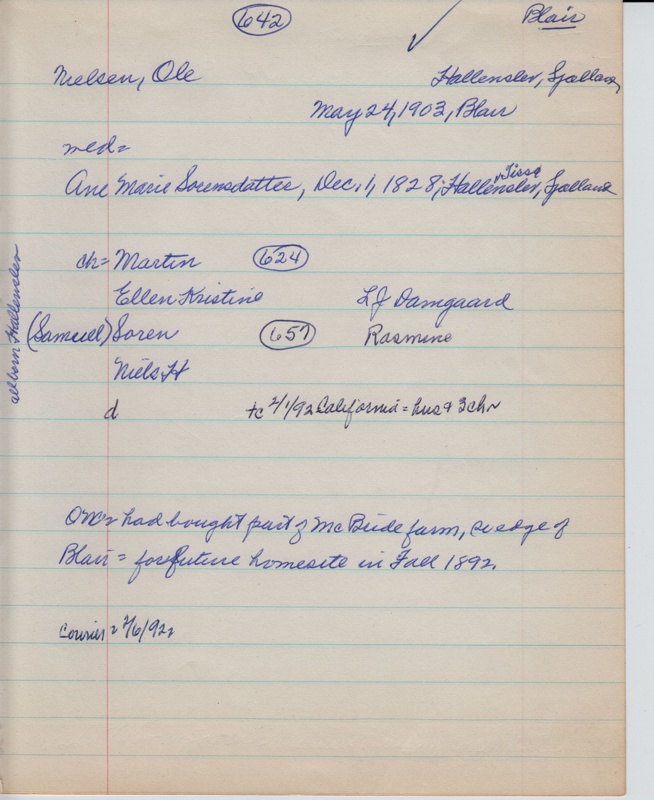 642
Blair
Nielsen, Ole Hallenslev, Sjælland
May 24, 1903, Blair
med=
Tissø
Ane Marie Sorensdatter, Dec. 1, 1828, Hallenslev, Sjælland
ch= Martin 624
Ellen Kristine L J Damgaard
(Samuel) Soren 657 Rasmine
Niels H
all born Hallenslev
d California = hus & 3 chn
had bought part of McBride farm, edge of
Blair = for future homesite in Fall 1892.
Courier